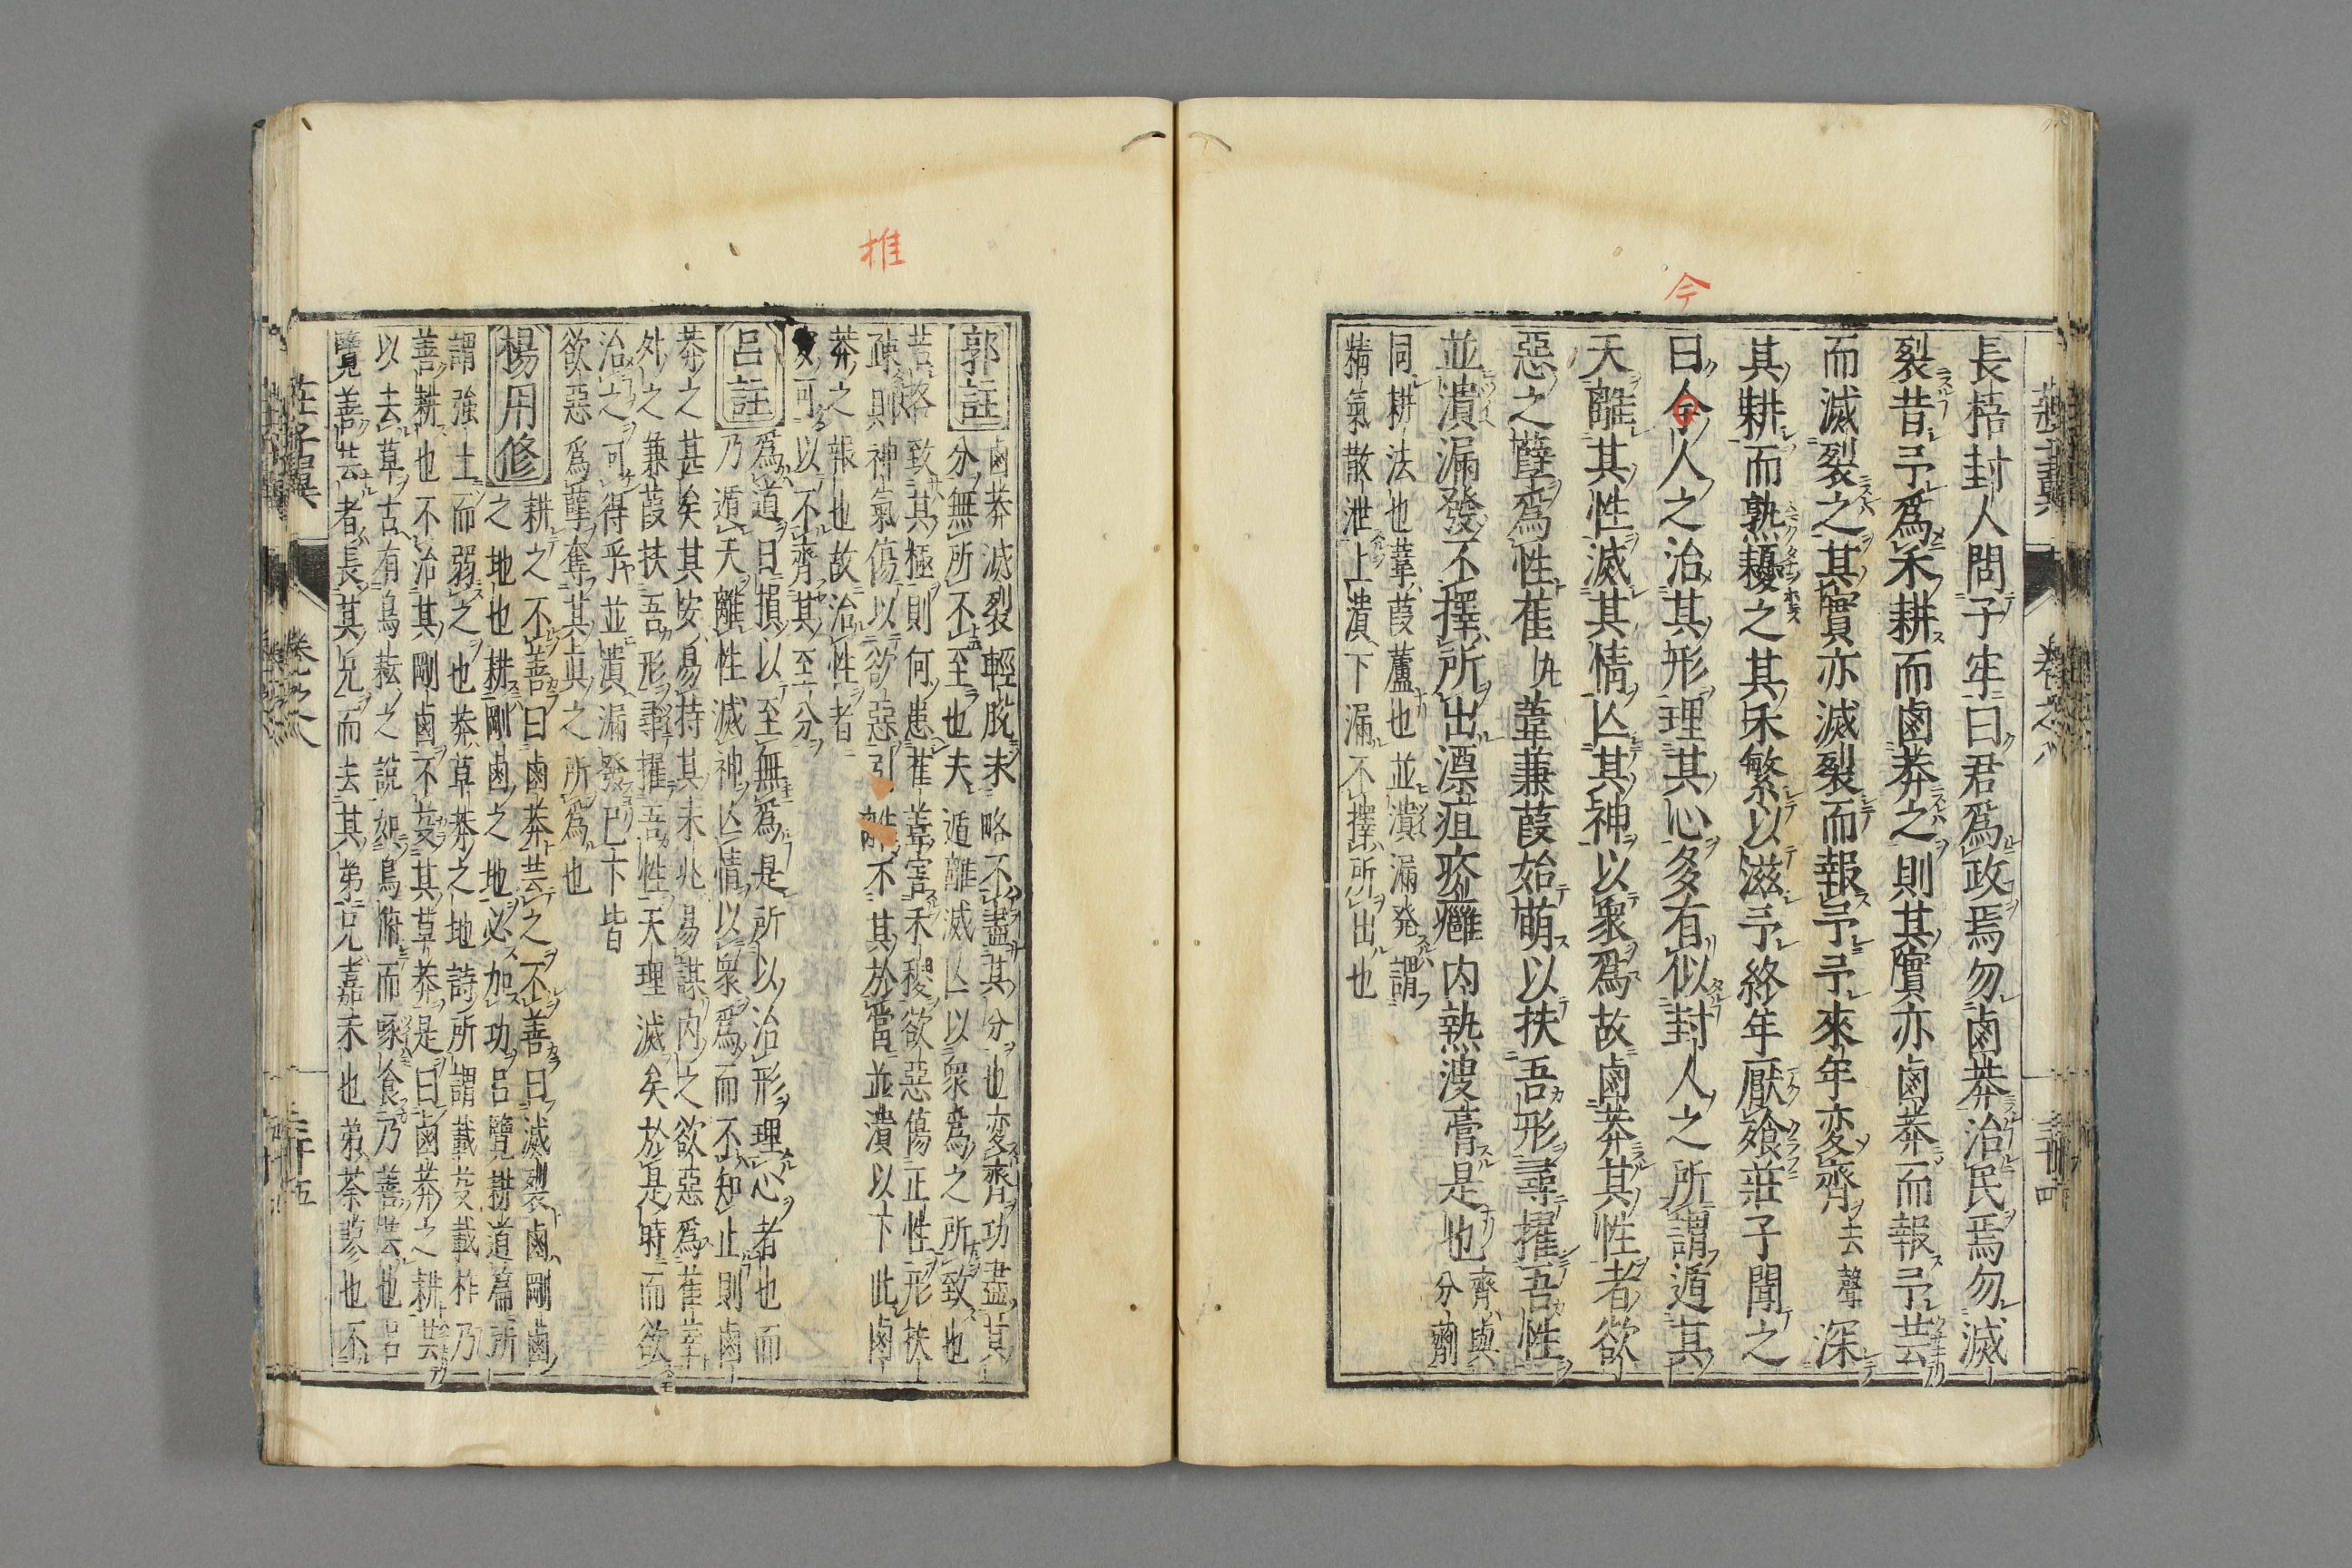 今
長梧封人問子牢曰君爲政焉勿鹵莽治民焉勿滅
裂昔予爲禾耕而鹵莽之則其實亦鹵莽而報予芸
而滅裂之其實亦滅裂而報予予來年変齊去聲深
其耕而熟耰之其禾繁以滋予終年厭飧莊子聞之
曰今人之治其形理其心多有似封人之所謂遁其
天離其性滅其情亾其神以衆爲故鹵莽其性者欲
惡之孽爲性萑葦蒹葭始萌以扶吾形尋擢吾性
並潰漏發不擇所出漂疽疥癰内熱溲膏是也齊與
分劑
同耕法也葦葭蘆也並潰漏発謂
精氣散泄上潰下漏不擇所出也
推
郭註
鹵莽滅裂輕脫末略不盡其分也変齊功盡其
分無所不至也夫遁離滅亾以衆爲之所致也
若各致其極則何患萑葦害禾稷欲惡傷正性形扶
疎則神氣傷以欲惡引不其於當並潰以下此鹵
莽之報也故治性者
安可以不齊其至分
呂註
爲道日損以至無爲是所以治形理心者也而
乃遁天離性滅神亾情以衆爲而不知止則鹵
莽之甚矣其安易持其未兆易謀内之欲惡爲萑葦
外之蒹葭扶吾形尋擢吾性天理滅矣於是時而欲
治之可得乎並潰漏發已下皆
欲惡爲孽奪其眞之所爲也
楊用修
耕之不善曰鹵莽芸之不善曰滅裂鹵剛鹵
之地也耕剛鹵之地必加功呂覽耕道篇所
謂強土而弱之也莽草莽之地詩所謂載芟載柞乃
善耕也不治其剛鹵不芟其草莽是曰鹵莽之耕芸
以去草古有鳥耘之説如鳥俯而啄食乃善芸也呂
覽善芸者長其兄而去其弟兄嘉禾也弟荼蓼也不